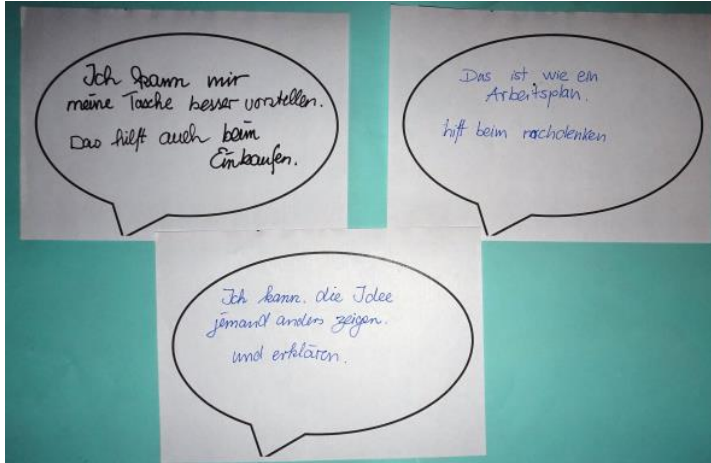 Ich kann mir
meine Tasche besser vorstellen.
Das hilft auch beim
Einkaufen.
Das ist wie ein
Arbeitsplan.
hift beim nachdenken
Ich kann. die Idee
jemand anders zeigen.
und erklären.